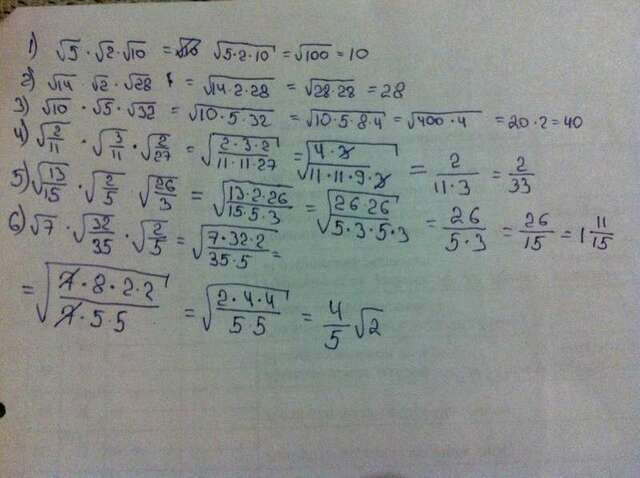 1) √5 · √2 · √10 = √(5·2·10) = √100 = 10
2) √14 · √2 · √28 = √(14·2·28) = √(28·28) = 28
3) √10 · √5 · √32 = √(10·5·32) = √(10·5·8·4) = √(400·4) = 20·2 = 40
4) √(2/11) · √(3/11) · √(2/27) = √((2·3·2)/(11·11·27)) = √((4·3)/(11·11·9·3)) = 2/(11·3) = 2/33
5) √(13/15) · √(2/5) √(26/3) = √((13·2·26)/(15·5·3)) = √((26·26)/(5·3·5·3)) = 26/(5·3) = 26/15 = 1 11/15
6) √7 · √(32/35) · √(2/5) = √((7·32·2)/(35·5)) =
= √((7·8·2·2)/(7·5·5)) = √((2·4·4)/(5 5)) = 4/5 √2